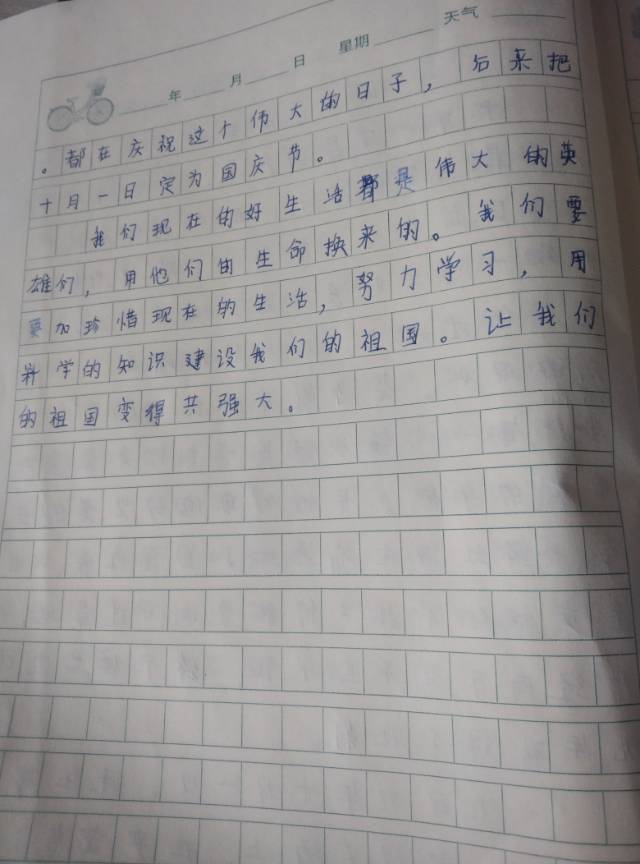 年 月 日 星期 天气
。都在庆祝这个伟大的日子，后来把
十月一日定为国庆节。
我们现在的好生活都是伟大的英
雄们，用他们由生命换来的。我们要
要加珍惜现在的生活，努力学习，用
科学的知识建设我们的祖国。让我们
的祖国变得共强大。